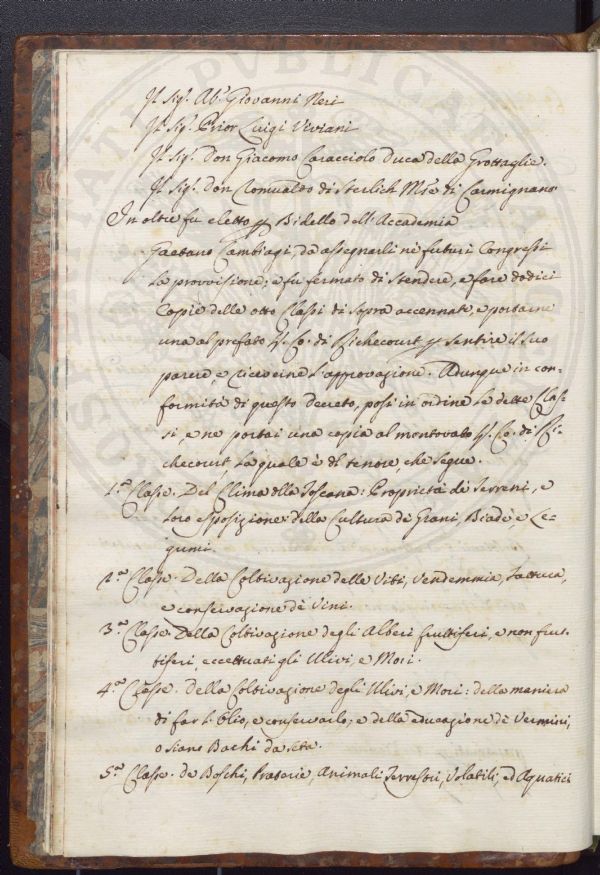 Il Sig.r Ab.e Giovanni Neri
Il Sig.r Prior Luigi Viviani
Il Sig.r Don Giacomo Caracciolo Duca della Grottaglie.
Il Sig.r Don Romualdo di Sterlich M.se di Carmignano
In oltre fu eletto p Bidello dell'Accademia
Gaetano Cambiagi, da assegnarli ne futuri Congressi
la provvisione; e fu fermato di stendere, e fare dodici
Copie delle otto Classi di sopra accennate, e portarne
una al prefato S. Co. di Richecourt p sentire il suo
parere, e riceverne l'approvazione. Adunque in con-
formità di questo decreto, posi in ordine le dette Clas-
si, e ne portai una copia al mentovato S. Co. di Ri-
checourt la quale è del tenore, che segue.
1.a Classe. Del Clima della Toscana: Proprietà di Terreni, e
loro esposizione: della Cultura de Grani, Biade, e Le-
gumi.
2.a Classe. Della Coltivazione delle Viti, Vendemmia, fattura,
e conservazione de Vini.
3.a Classe. Della Coltivazione degli Alberi fruttiferi, e non frut-
tiferi eccettuati gli Ulivi, e Mori.
4.a Classe. della Coltivazione degli Ulivi, e Mori: della maniera
di far l'olio, e conservarlo; e della educazione de Vermini,
o siano Bachi da seta.
5.a Classe. de Boschi, Praterie, Animali Terrestri, Volatili, ed Aquatici